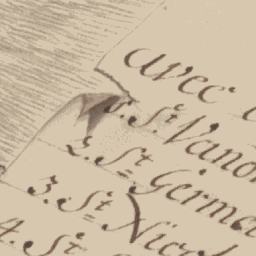 avec
1. S.t Vano
2. S.t Germe
3. S.t Nicol
4. S.t